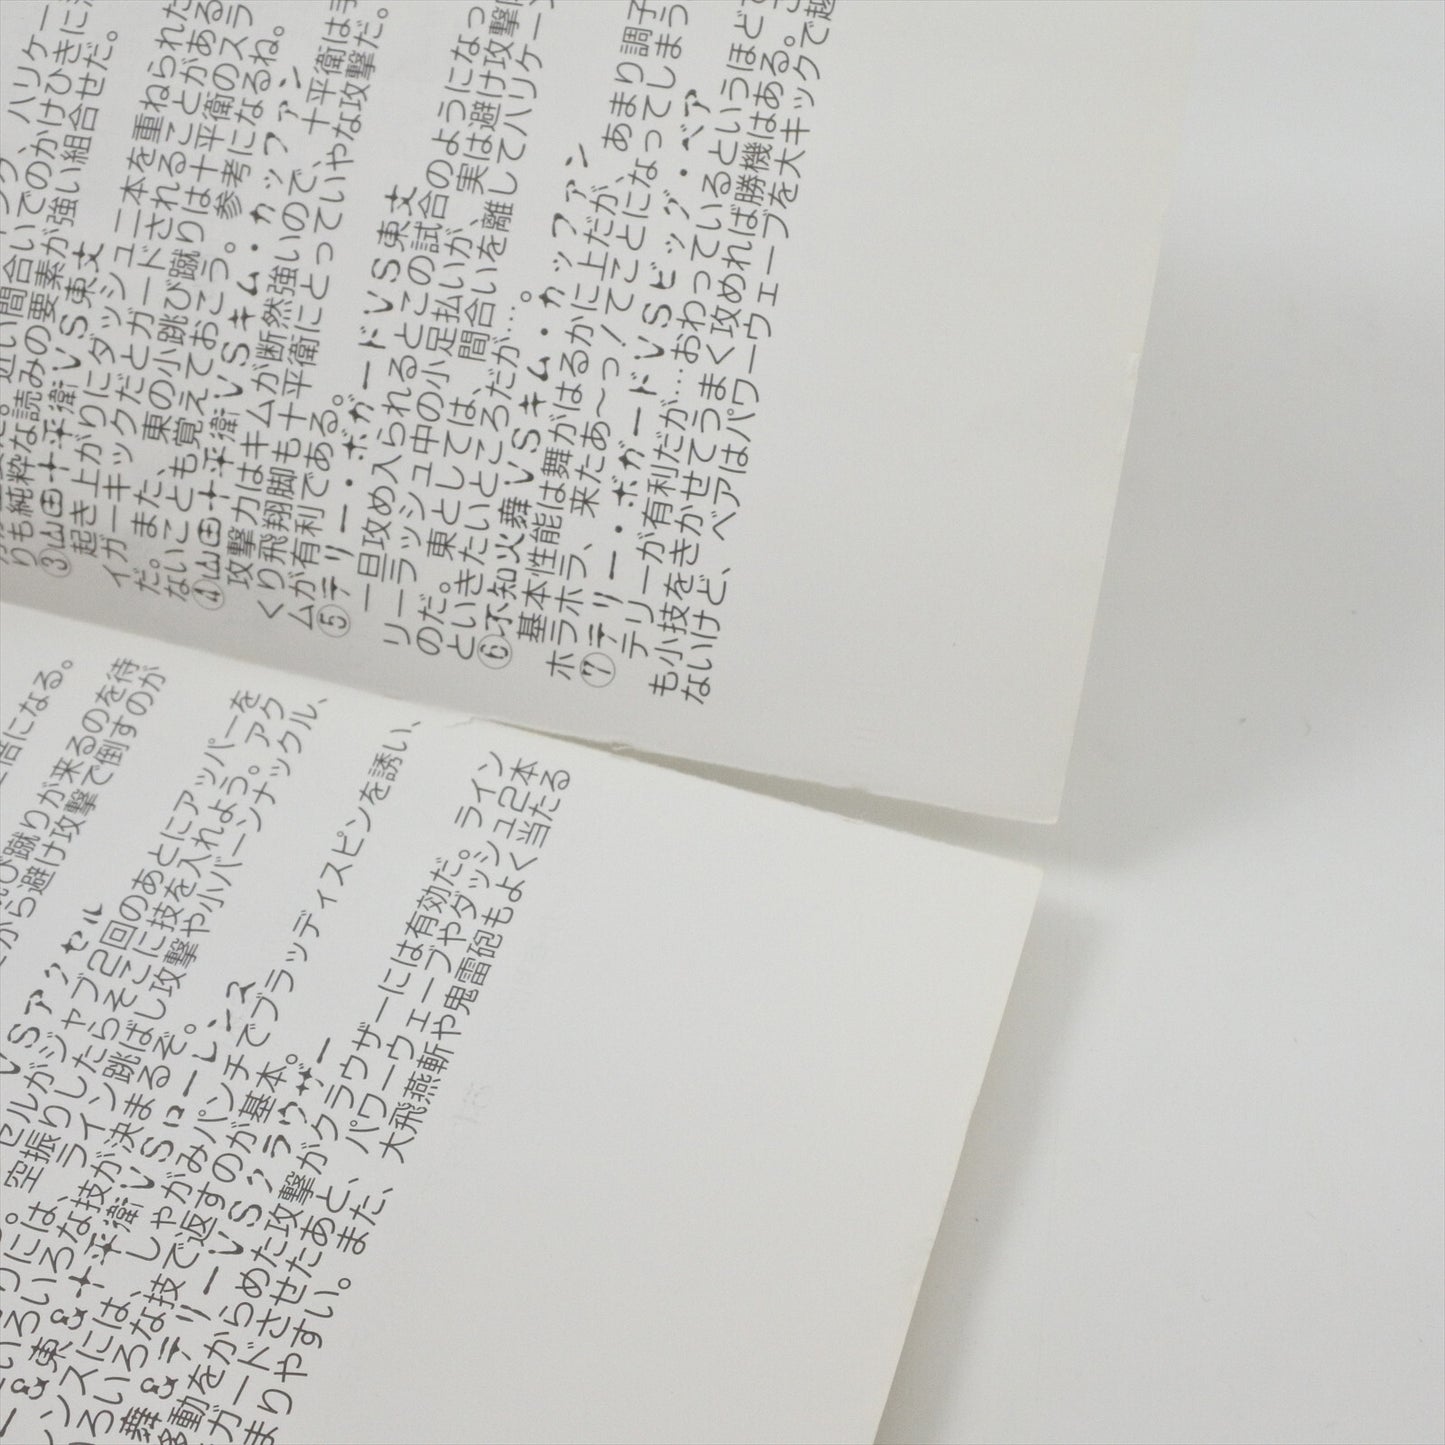 ハリケー
近い間合いでのかけひきに
りも純粋な読みの要素が強い組合せだ。
③山田十平衛VS東丈
起き上がりにダッシュ二本を重ねられた
イガーキックだとガードされることがある
だ。また、東の小跳び蹴りは十平衛のスラ
ないことも覚えておこう。参考になるね。
④山田十平衛VSキム・カッファン
攻撃力はキムが断然強いので、十平衛は手
くり飛翔脚も十平衛にとっていやな攻撃だ。
ムが有利である。
⑤テリー・ボガードVS東丈
一旦攻め入られるとこの試合のようになっ
リーラッシュ中の小足払いが、実は避け攻撃
のだ。東としては、間合いを離してハリケーン
といきたいところだが…。
⑥不知火舞VSキム・カッファン
基本性能は舞がはるかに上だが、あまり調子
ホラホラ、来たあ〜っ！てことになってしまう
⑦テリー・ボガードVSビッグ・ベア
テリーが有利だが…おわっているというほど
も小技をきかせてうまく攻めれば勝機はある。
ないけど、ベアはパワーウェーブを大キックで越
倍になる。
び蹴りが来るのを待
から避け攻撃で倒すのが
VSアクセル
セルがジャブ2回のあとにアッパーを
空振りしたらそこに技を入れよう。アク
りには、ライン跳ばし攻撃や小バーンナックル、
いろいろな技が決まるぞ。
東&十平衛VSローレンス
ンスには、しゃがみパンチでブラッディスピンを誘い、
ろいろな技で返すのが基本。
舞&テリーVSクラウザー
移動をからめた攻撃がクラウザーには有効だ。ライン
ガードさせたあと、パワーウェーブやダッシュ2本
まりやすい。また、大飛燕斬や鬼雷砲もよく当たる